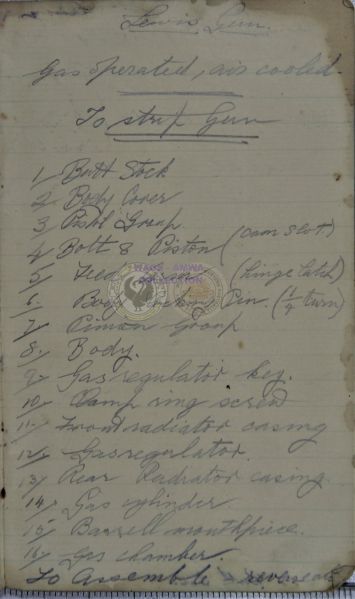 Lewis Gun.
Gas operated, air cooled.
To strip Gun
1, Butt Stock
2, Body Cover
3, Pistol Group.
4, Bolt & Piston (cam slot)
5, Feed (hinge latch)
6, Body Locking Pin. (1/4 turn)
7, Pinion Group
8, Body.
9, Gas regulator key.
10, Clamp ring screw
11, Front radiator casing
12, Gas regulator.
13, Rear Radiator casing.
14, Gas cylinder.
15, Barrell mouthpiece.
16, Gas chamber.
To Assemble reverse